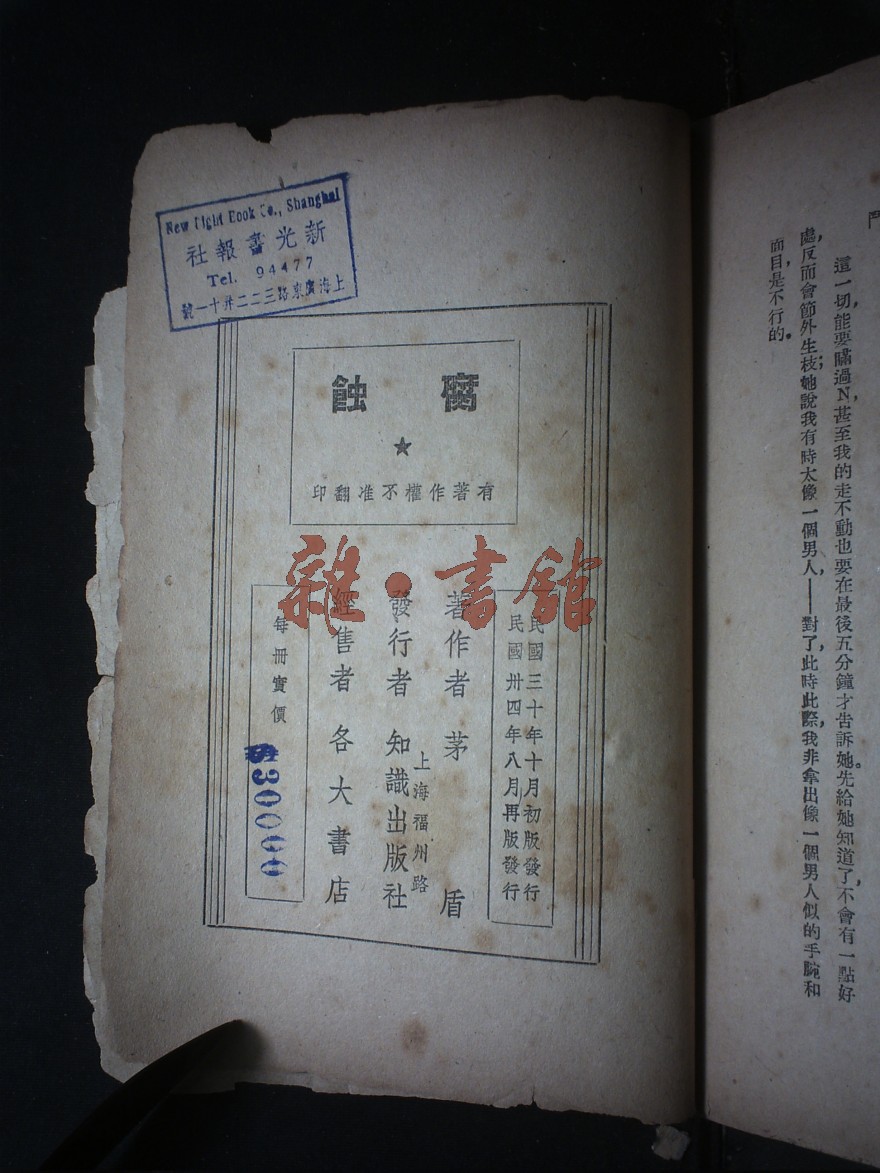 門
這一切,能要瞞過N,甚至我的走不動也要在最後五分鐘才告訴她。先給她知道了,不會有一點好
處,反而會節外生枝;她說我有時太像一個男人,——對了,此時此際,我非拿出像一個男人似的手腕和
面目是不行的。
New Light Book Co., Shanghai
新光書報社
Tel. 94477
上海廣東路三二二弄十一號
腐蝕
★
有著作權不准翻印
民國三十年十月初版發行
民國卅四年八月再版發行
著作者 茅盾
上海福州路
發行者 知識出版社
經售者 各大書店
每冊實價
$30000
雜·書館